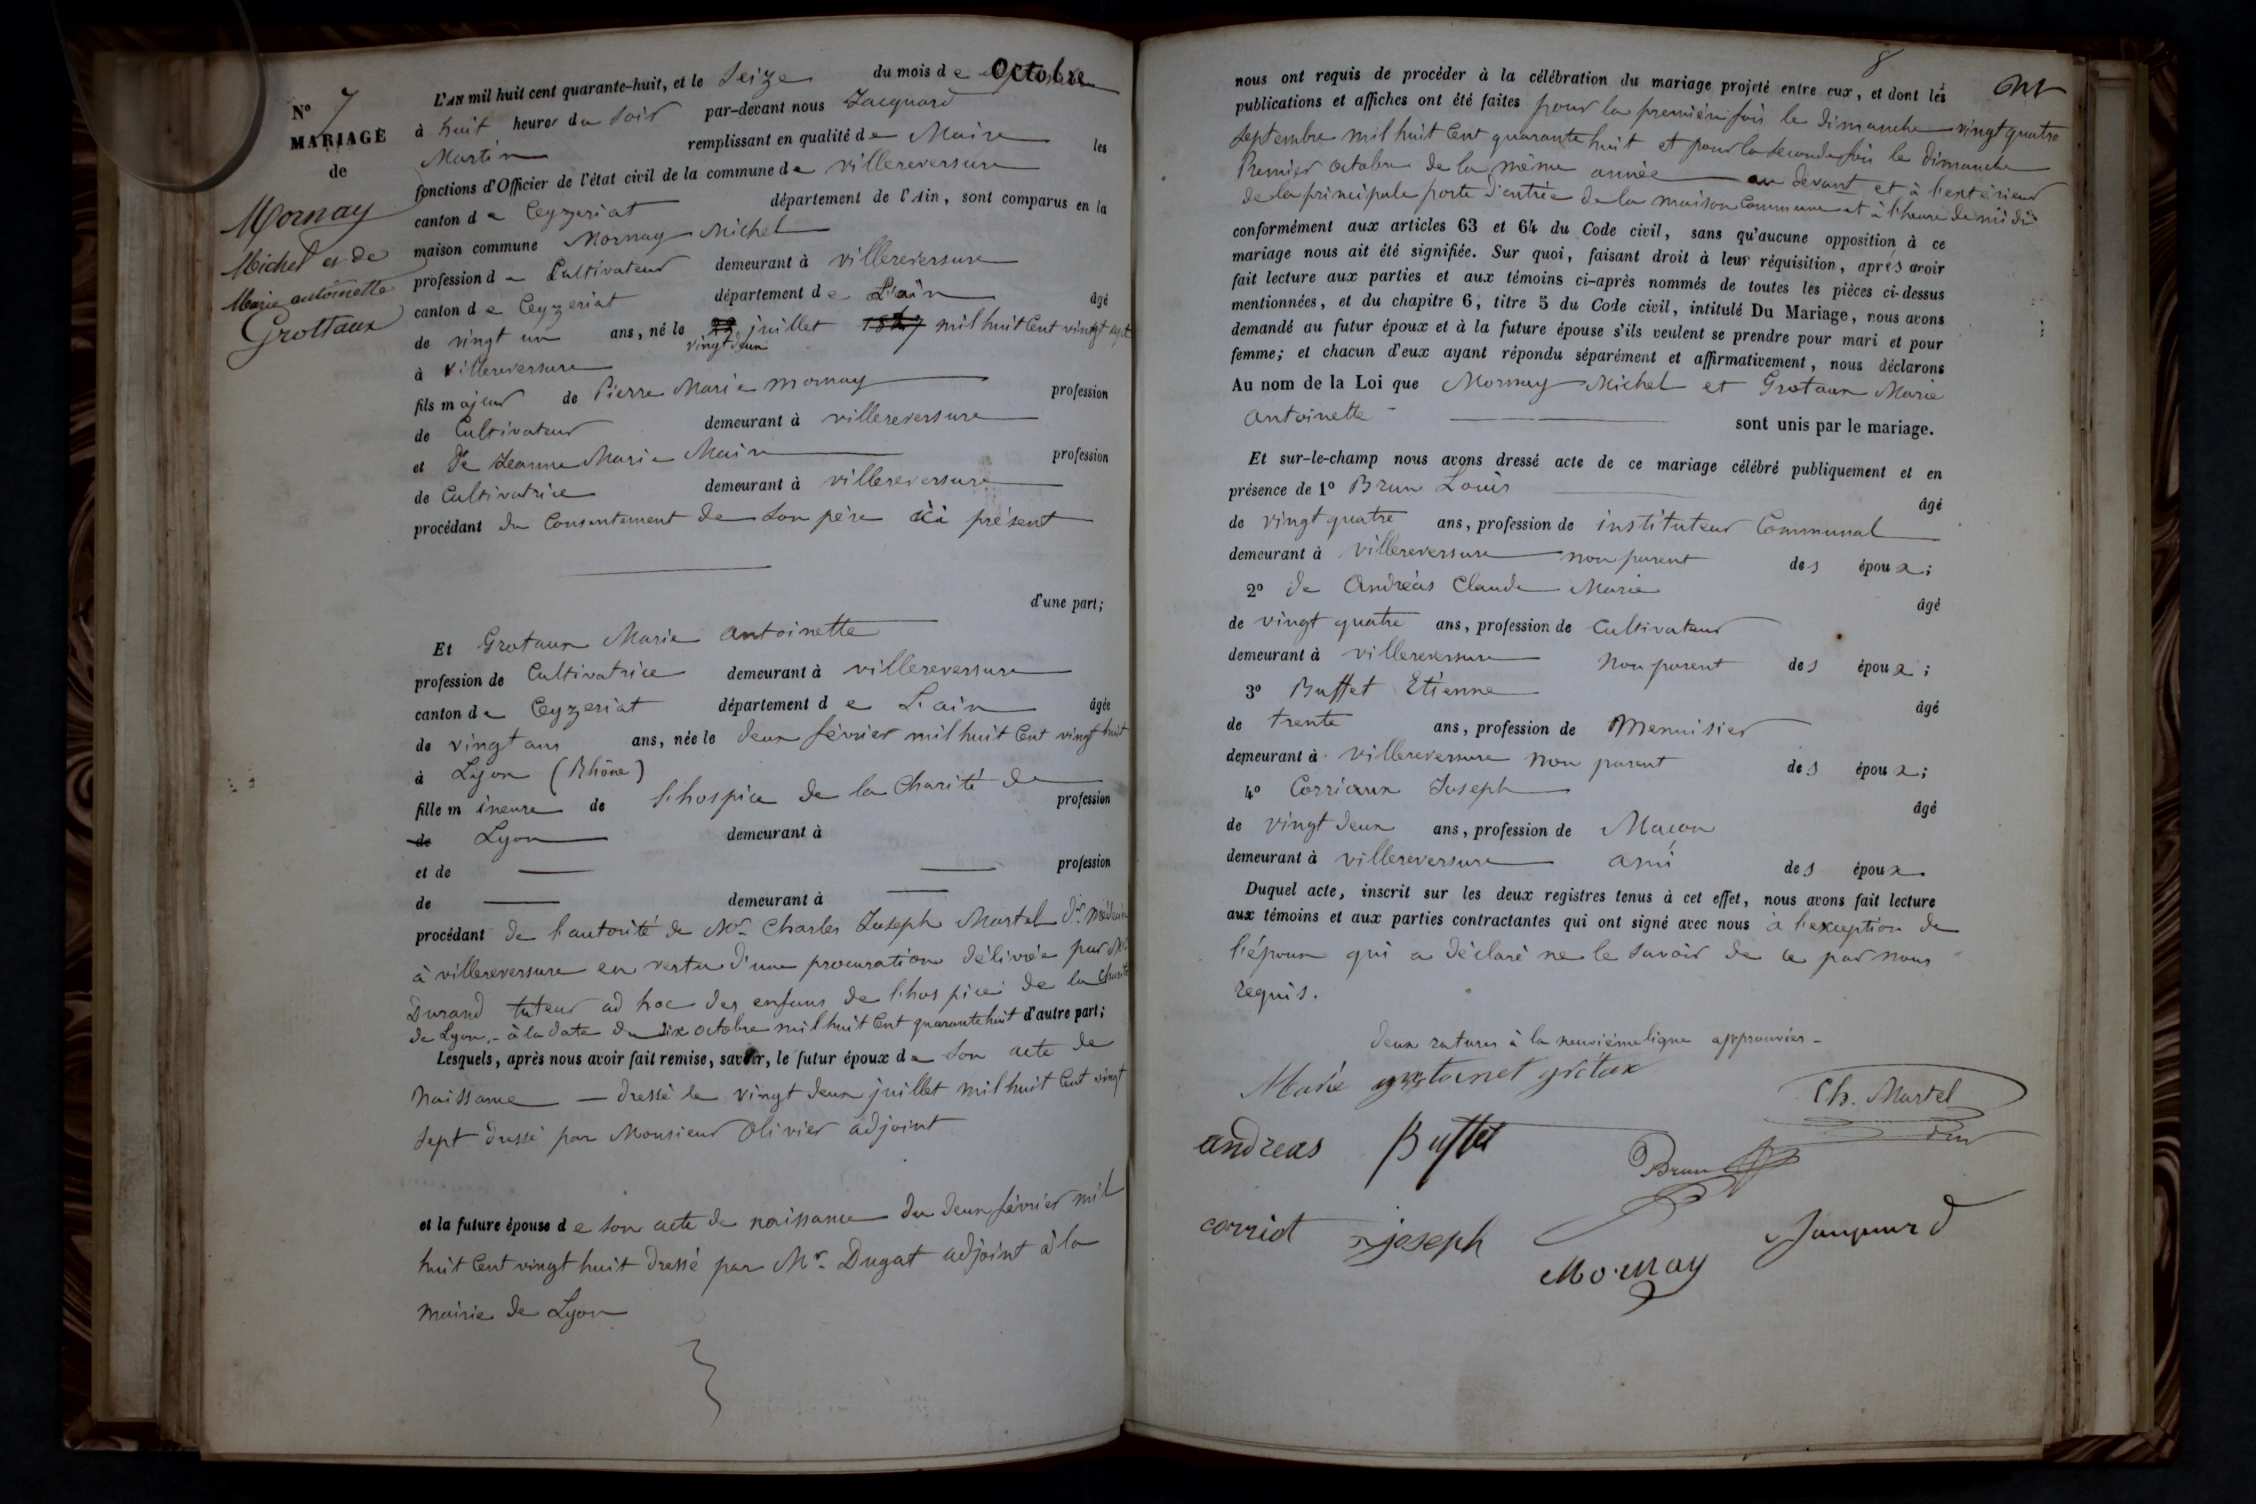 N° 7
MARIAGE
de
Mornay
Michel et de
Marie antoinette
Grottaux
L'AN mil huit cent quarante-huit, et le Seize du mois de Octobre
à huit heures du Soir par-devant nous Jacquard
Martin remplissant en qualité de Maire les
fonctions d'Officier de l'état civil de la commune de villereversure
canton de Ceyzeriat département de l'Ain, sont comparus en la
maison commune Mornay Michel
profession de Cultivateur demeurant à villereversure
canton de Ceyzeriat département de L'ain âgé
de vingt un ans, né le juillet 1827 mil huit Cent vingt sept
vingt deux
à villereversure
fils majeur de Pierre Marie mornay profession
de Cultivateur demeurant à villereversure
et de Jeanne Marie Main profession
de Cultivatrice demeurant à villereversure
procédant du Consentement de Son père ici présent
d'une part;
Et Grotaux Marie antoinette
profession de Cultivatrice demeurant à villereversure
canton de Ceyzeriat département de L'ain âgée
de vingt ans ans, née le deux février mil huit Cent vingt huit
à Lyon (Rhône)
fille mineure de L'hospice de la Charité de profession
de Lyon demeurant à
et de profession
de demeurant à
procédant de l'autorité de Mr Charles Joseph Martel Dr Médecin
à villereversure en vertu d'une procuration délivrée par Mr
Durand tuteur ad hoc des enfans de l'hospice de la Charité
de Lyon, à la date du dix octobre mil huit Cent quarante huit d'autre part;
Lesquels, après nous avoir fait remise, savoir, le futur époux de Son acte de
Naissance dressé le vingt deux juillet mil huit Cent vingt
Sept dressé par Monsieur Olivier adjoint
et la future épouse de son acte de naissance du deux février mil
huit Cent vingt huit dressé par Mr Dugat adjoint à la
mairie de Lyon
8
nous ont requis de procéder à la célébration du mariage projeté entre eux, et dont les
publications et affiches ont été faites pour la première fois le dimanche vingt quatre
Septembre mil huit Cent quarante huit et pour la Seconde fois le dimanche
Premier octobre de la même année au devant et à l'extérieur
de la principale porte d'entrée de la maison Commune et à l'heure de midi
conformément aux articles 63 et 64 du Code civil, sans qu'aucune opposition à ce
mariage nous ait été signifiée. Sur quoi, faisant droit à leur réquisition, après avoir
fait lecture aux parties et aux témoins ci-après nommés de toutes les pièces ci-dessus
mentionnées, et du chapitre 6, titre 5 du Code civil, intitulé Du Mariage, nous avons
demandé au futur époux et à la future épouse s'ils veulent se prendre pour mari et pour
femme; et chacun d'eux ayant répondu séparément et affirmativement, nous déclarons
Au nom de la Loi que Mornay Michel et Grotaux Marie
antoinette sont unis par le mariage.
Et sur-le-champ nous avons dressé acte de ce mariage célébré publiquement et en
présence de 1° Brun Louis âgé
de vingt quatre ans, profession de instituteur Communal
demeurant à villereversure non parent des époux;
2° de Andréas Claude Marie âgé
de vingt quatre ans, profession de Cultivateur
demeurant à villereversure non parent des époux;
3° Buffet Etienne âgé
de trente ans, profession de Menuisier
demeurant à villereversure non parent des époux;
4° Corriaux Joseph âgé
de vingt deux ans, profession de Maçon
demeurant à villereversure ami des époux
Duquel acte, inscrit sur les deux registres tenus à cet effet, nous avons fait lecture
aux témoins et aux parties contractantes qui ont signé avec nous à l'exception de
l'époux qui a déclaré ne le Savoir de ce par nous
requis.
deux ratures à la neuvième ligne approuvées
Marie antoinet grotax
Ch. Martel
andreas Buffet
Brun
corriot joseph
Mornay
Jacquard